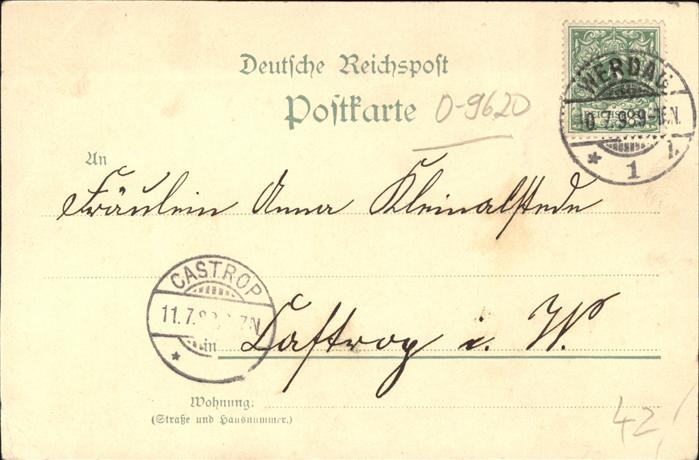 Deutsche Reichspost
Postkarte
0-9620
WERDAU
10.7.98 9-10N.
* 1 *
An
Fräulein Anna Kleinalstede
CASTROP
11.7.
*
in Castrop i. W.
Wohnung:
(Straße und Hausnummer.)
42